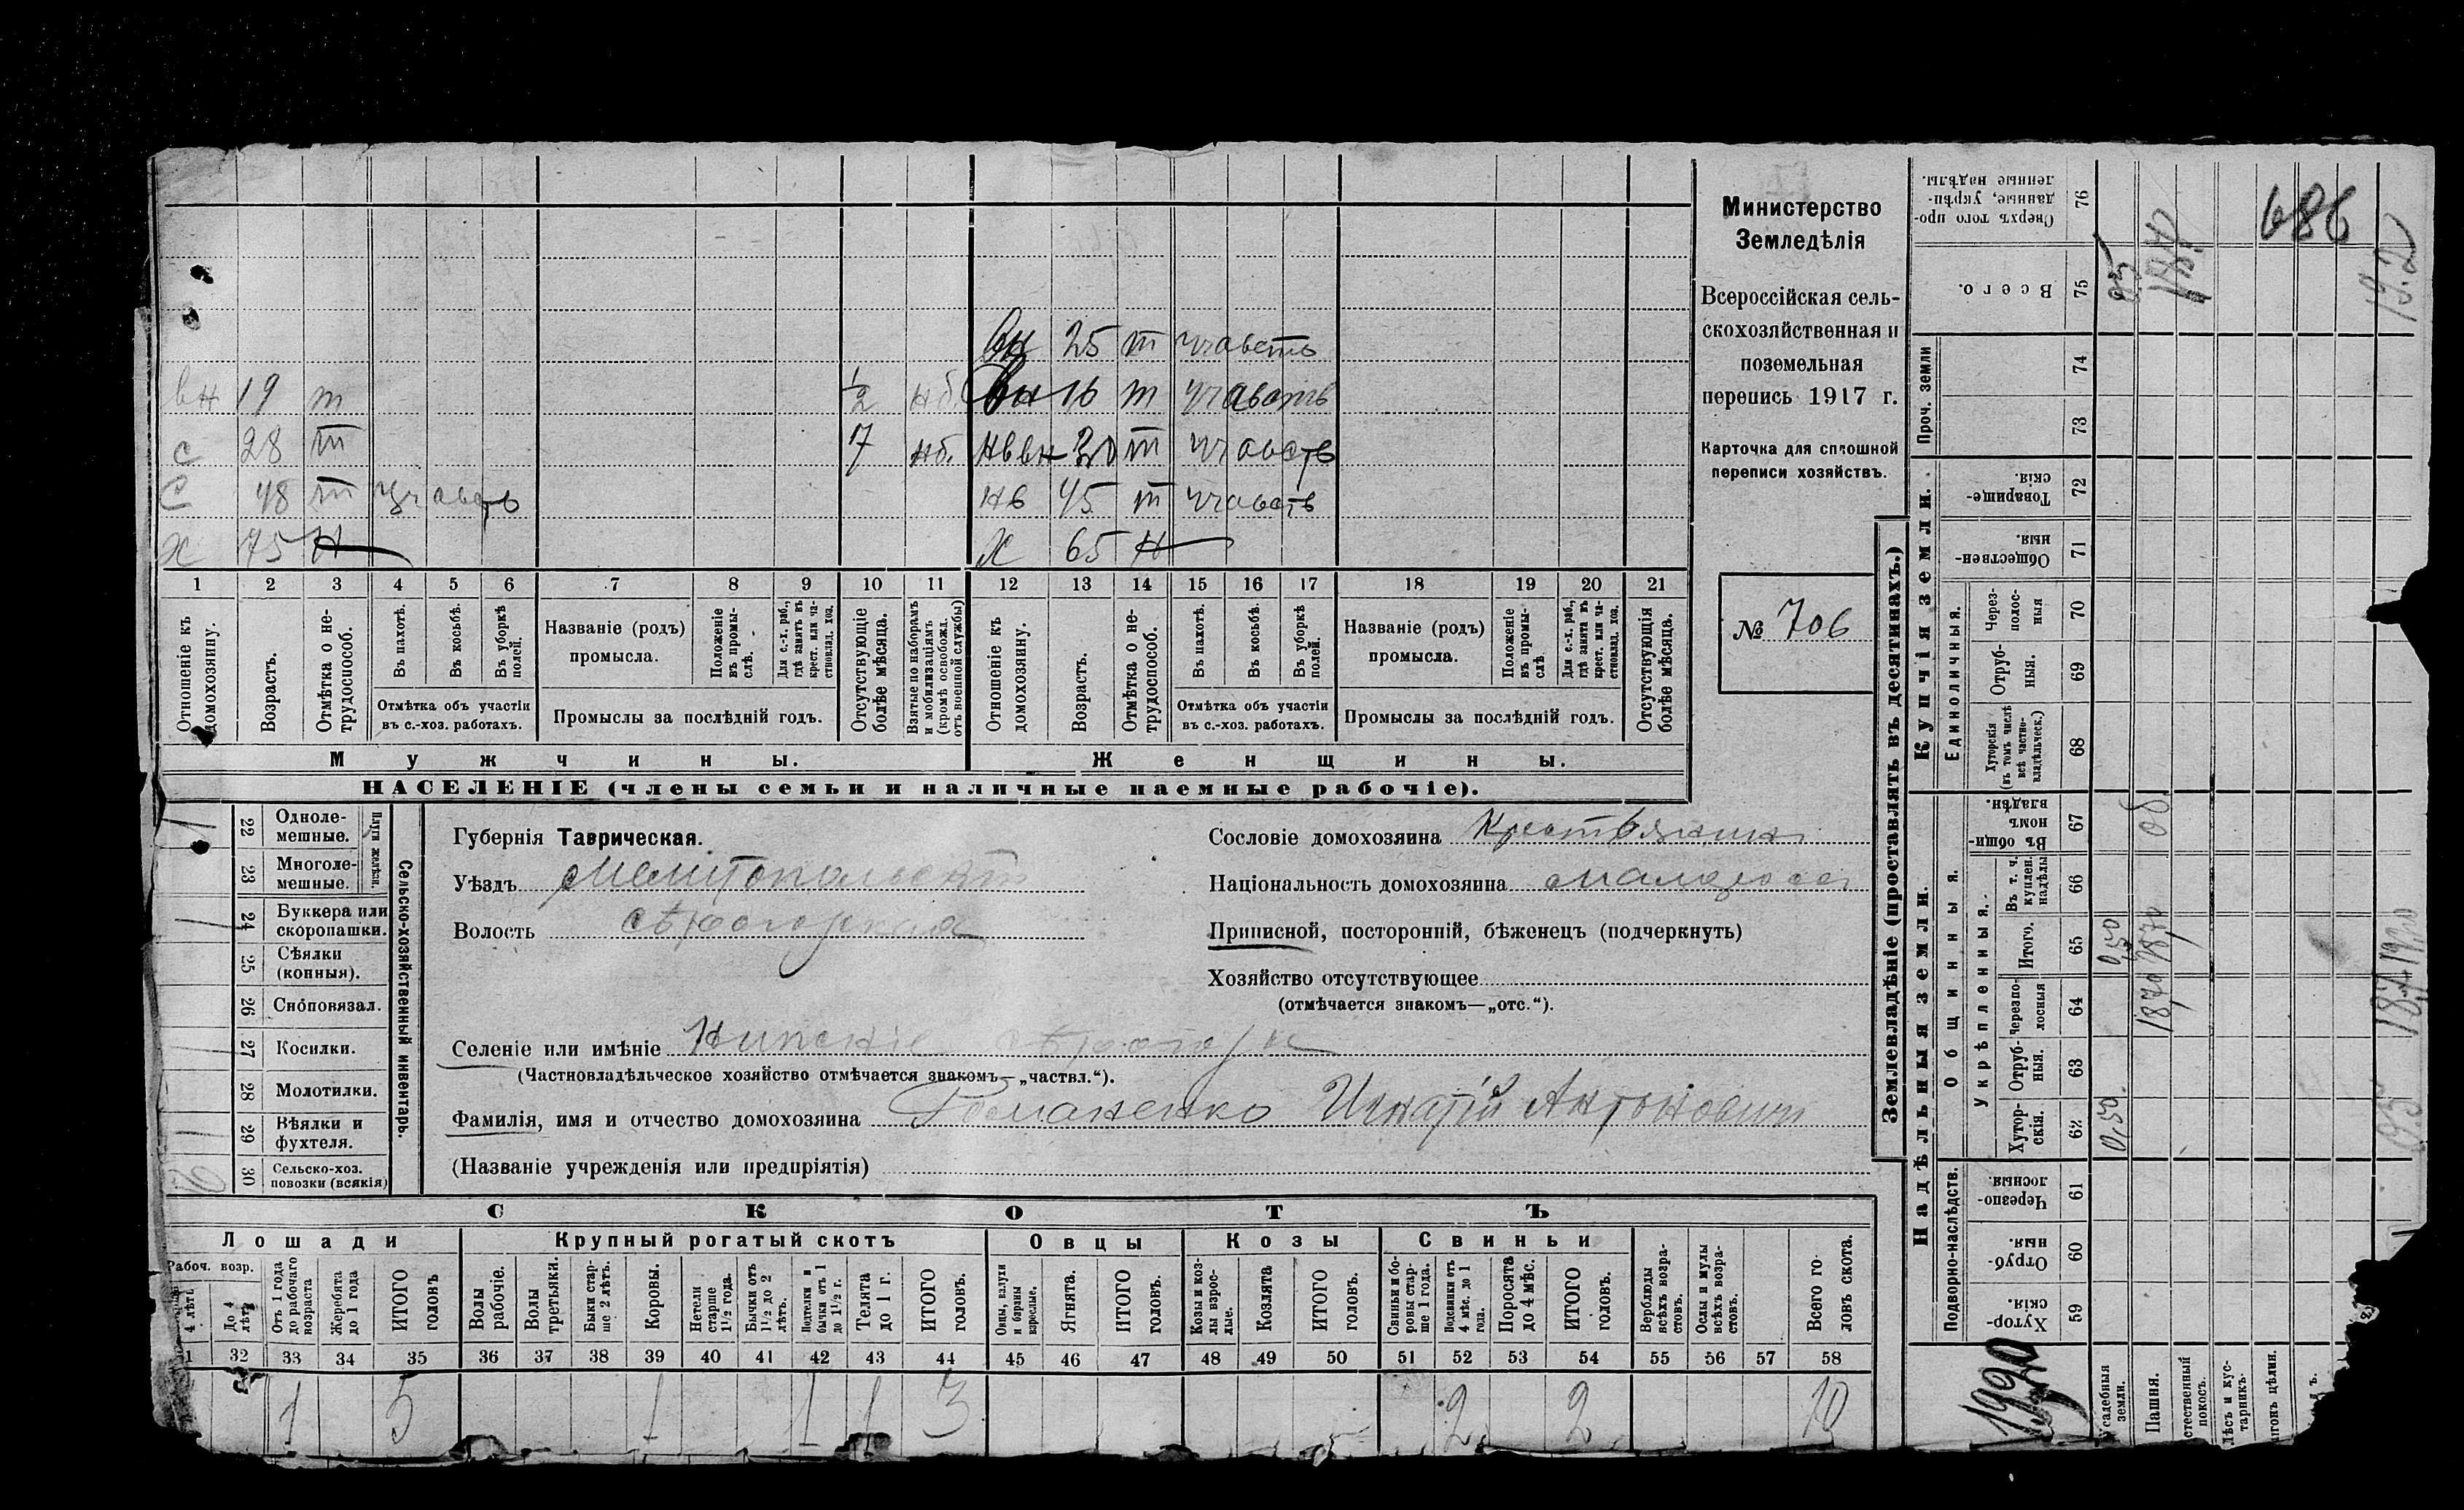 Министерство
Земледѣлія
Всероссійская сель-
скохозяйственная и
поземельная
перепись 1917 г.
Карточка для сплошной
переписи хозяйствъ.
№ 706
вн 25 т
вн 19 т 1/2 нб вн 16 т
с 28 т 7 нб. т
с 48 т нв 45 т
х 75 н х 65 н
1 2 3 4 5 6 7 8 9 10 11 12 13 14 15 16 17 18 19 20 21
Отношеніе къ домохозяину.
Возрастъ.
Отмѣтка о не-трудоспособ.
Въ пахотѣ.
Въ косьбѣ.
Въ уборкѣ полей.
Отмѣтка объ участіи
въ с.-хоз. работахъ.
Названіе (родъ)
промысла.
Положеніе въ промы-слѣ.
Для с.-х. раб., гдѣ занятъ въ крест. или ча-стновлад. хоз.
Промыслы за послѣдній годъ.
Отсутствующіе болѣе мѣсяца.
Взятые по наборамъ и мобилизаціямъ (кромѣ освобожд. отъ военной службы)
Отношеніе къ домохозяину.
Возрастъ.
Отмѣтка о не-трудоспособ.
Въ пахотѣ.
Въ косьбѣ.
Въ уборкѣ полей.
Отмѣтка объ участіи
въ с.-хоз. работахъ.
Названіе (родъ)
промысла.
Положеніе въ промы-слѣ
Для с.-х. раб., гдѣ занята въ крест. или ча-стновлад. хоз.
Промыслы за послѣдній годъ.
Отсутствующія болѣе мѣсяца.
Мужчины.
Женщины.
НАСЕЛЕНІЕ (члены семьи и наличные наемные рабочіе).
Сельско-хозяйственный инвентарь.
Плуги желѣзн.
22 Одноле-мешные.
23 Многоле-мешные.
24 Буккера или скоропашки.
25 Сѣялки (конныя).
26 Сноповязал.
27 Косилки.
28 Молотилки.
29 Вѣялки и фухтеля.
30 Сельско-хоз. повозки (всякія)
Губернія Таврическая.
Уѣздъ Мелитопольскій
Волость Сѣрогозская
Сословіе домохозяина Крестьянинъ
Національность домохозяина малоросс
Приписной, посторонній, бѣженецъ (подчеркнуть)
Хозяйство отсутствующее
(отмѣчается знакомъ—„отс.“).
Селеніе или имѣніе Нижніе Сѣрогозы
(Частновладѣльческое хозяйство отмѣчается знакомъ—„частвл.“).
Фамилія, имя и отчество домохозяина Романенко Игнатій Антоновичъ
(Названіе учрежденія или предпріятія)
СКОТЪ
Лошади
Крупный рогатый скотъ
Овцы
Козы
Свиньи
Рабоч. возр.
4 лѣтъ
До 4 лѣтъ
Отъ 1 года до рабочаго возраста
Жеребята до 1 года
ИТОГО головъ
Волы рабочіе.
Волы третьяки.
Быки стар-ше 2 лѣтъ.
Коровы.
Нетели старше 1½ года.
Бычки отъ 1½ до 2 лѣтъ.
Подтелки и бычки отъ 1 до 1½ г.
Телята до 1 г.
ИТОГО головъ.
Овцы, валухи и бараны взрослые.
Ягнята.
ИТОГО головъ.
Козы и коз-лы взрос-лые.
Козлята
ИТОГО головъ.
Свиньи и бо-ровы стар-ше 1 года.
Подсвинки отъ 4 мѣс. до 1 года.
Поросята до 4 мѣс.
ИТОГО головъ.
Верблюды всѣхъ возра-стовъ.
Ослы и мулы всѣхъ возра-стовъ.
Всего го-ловъ скота.
32 33 34 35 36 37 38 39 40 41 42 43 44 45 46 47 48 49 50 51 52 53 54 55 56 57 58
1 5 1 1 1 3 2 2 10
Землевладѣніе (проставлять въ десятинахъ.)
Надѣльныя земли.
Купчія земли.
Проч. земли
Подворно-наслѣдств.
Общинныя.
Укрѣпленныя.
Единоличныя.
59 Хутор-скія.
60 Отруб-ныя.
61 Черезпо-лосныя.
62 Хутор-скія.
63 Отруб-ныя.
64 Черезпо-лосныя
65 Итого.
66 Въ т. ч. куплен. надѣлы
67 Въ общи-номъ владѣн.
68 Хуторскія (въ томъ числѣ всѣ частно-владѣльческ.)
69 Отруб-ныя.
70 Через-полос-ныя
71 Обществен-ныя.
72 Товарище-скія.
73
74
75 Всего.
76 Сверхъ того про-данные, укрѣп-ленные надѣлы.
Усадебныя земли.
0,50 0,50
Пашня.
1870 1870
686
19.2